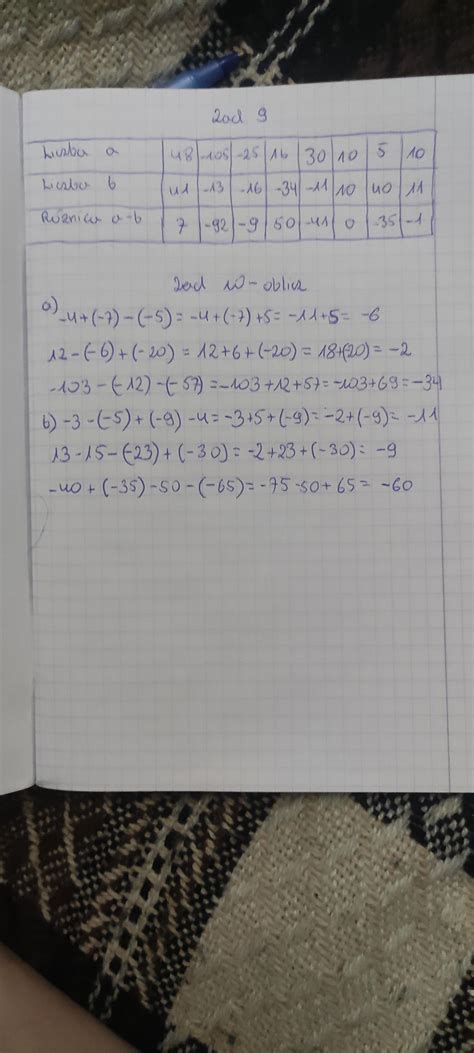 Zad 9
Liczba a 48 -105 -25 16 30 10 5 10
Liczba b 41 -13 -16 -34 -11 10 40 11
Różnica a-b 7 -92 -9 50 -41 0 -35 -1
Zad 10-oblicz
a) -4+(-7)-(-5)=-4+(-7)+5=-11+5=-6
12-(-6)+(-20)=12+6+(-20)=18+(20)=-2
-103-(-12)-(-57)=-103+12+57=-103+69=-34
b) -3-(-5)+(-9)-4=-3+5+(-9)=-2+(-9)=-11
13-15-(-23)+(-30)=-2+23+(-30)=-9
-40+(-35)-50-(-65)=-75-50+65=-60